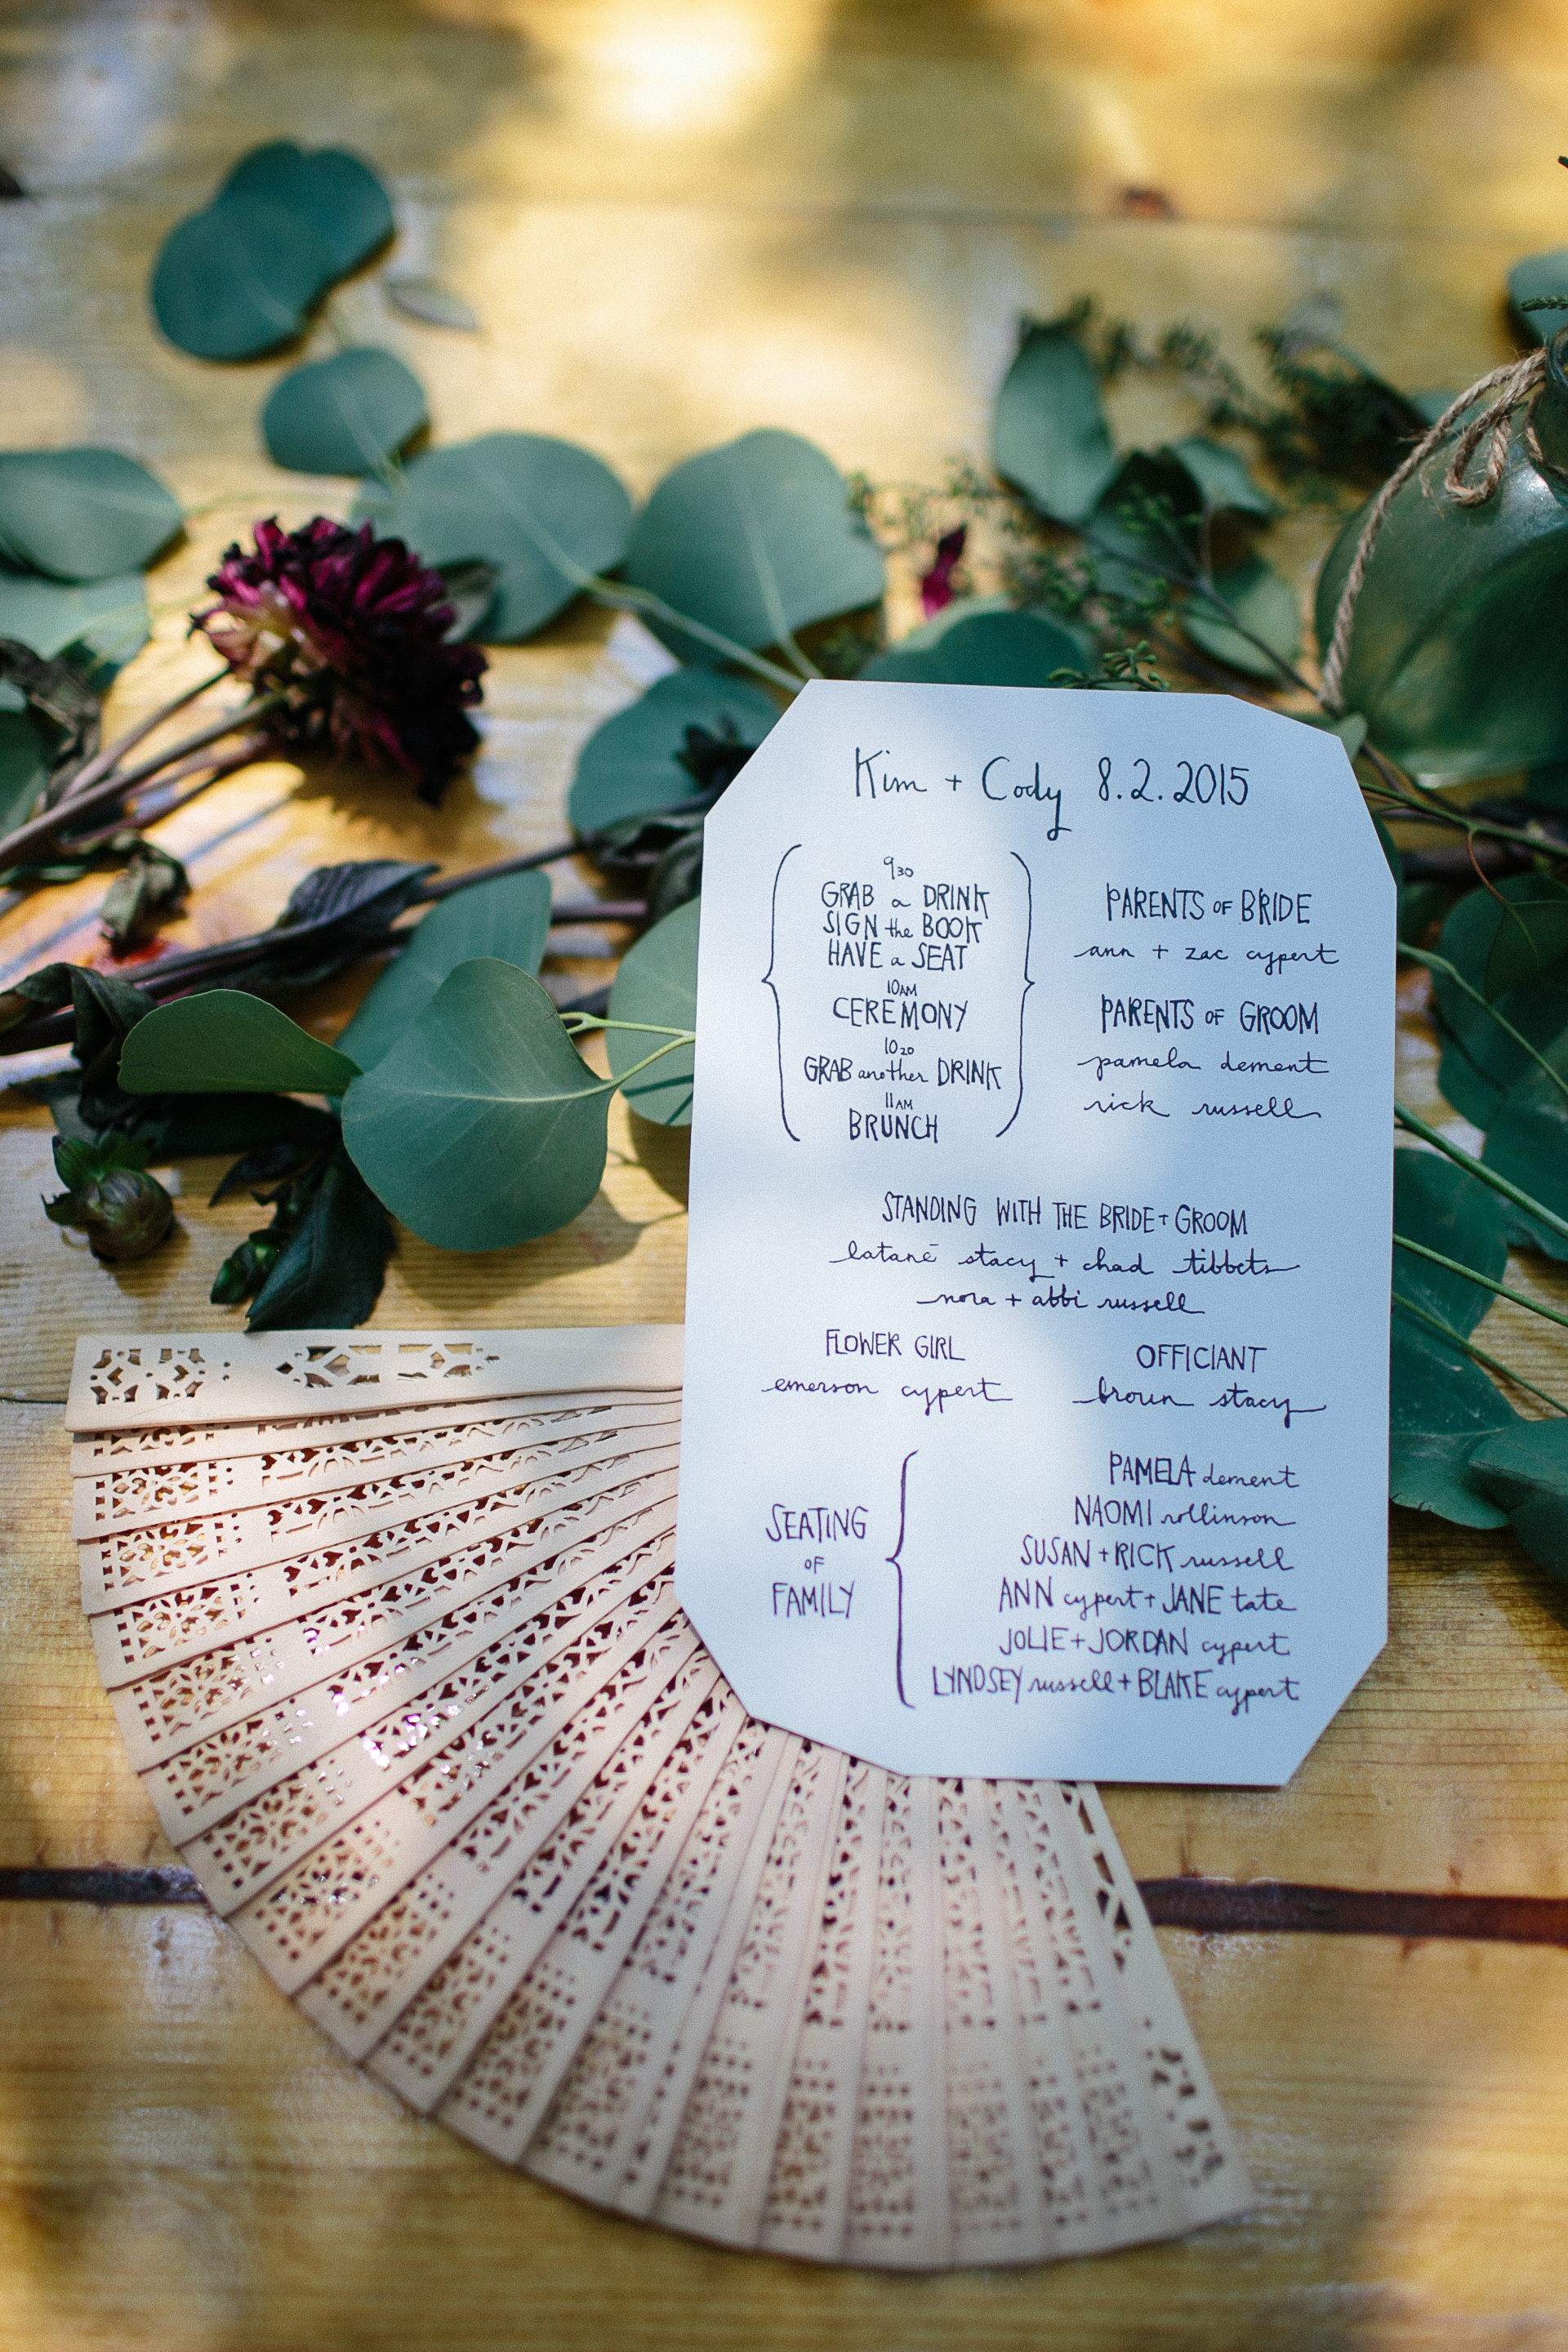 Kim + Cody 8.2.2015
930
GRAB a DRINK
SIGN the BOOK
HAVE a SEAT
10AM
CEREMONY
1020
GRAB another DRINK
11AM
BRUNCH
PARENTS OF BRIDE
ann + zac cypert
PARENTS OF GROOM
pamela dement
rick russell
STANDING WITH THE BRIDE + GROOM
latané stacy + chad tibbets
nora + abbi russell
FLOWER GIRL
emerson cypert
OFFICIANT
broun stacy
SEATING
OF
FAMILY
PAMELA dement
NAOMI rollinson
SUSAN + RICK russell
ANN cypert + JANE tate
JOLIE + JORDAN cypert
LYNDSEY russell + BLAKE cypert